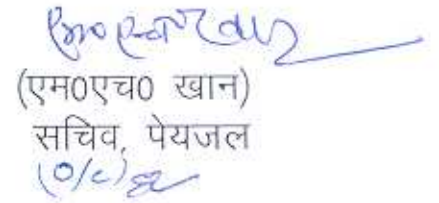 (एम0एच0 खान)
सचिव, पेयजल
(O/c)